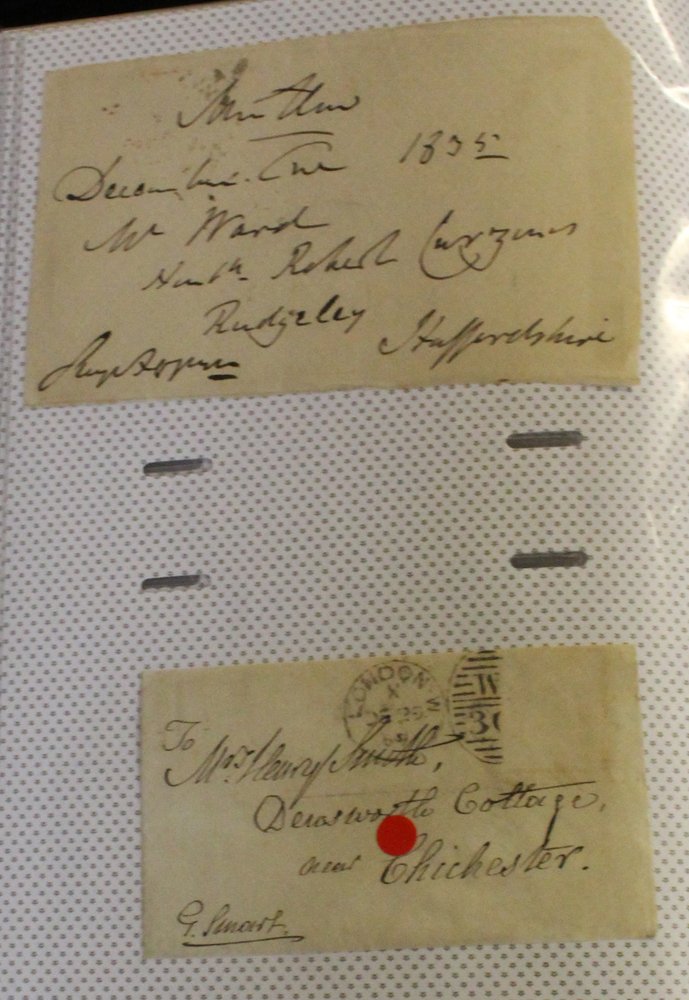 December One 1835
Mr Ward
Honble Robert Curzons
Rudgeley Staffordshire
LONDON W
X
W
To
Mrs Henry Smith,
Densworth Cottage,
near Chichester.
G. Smart.